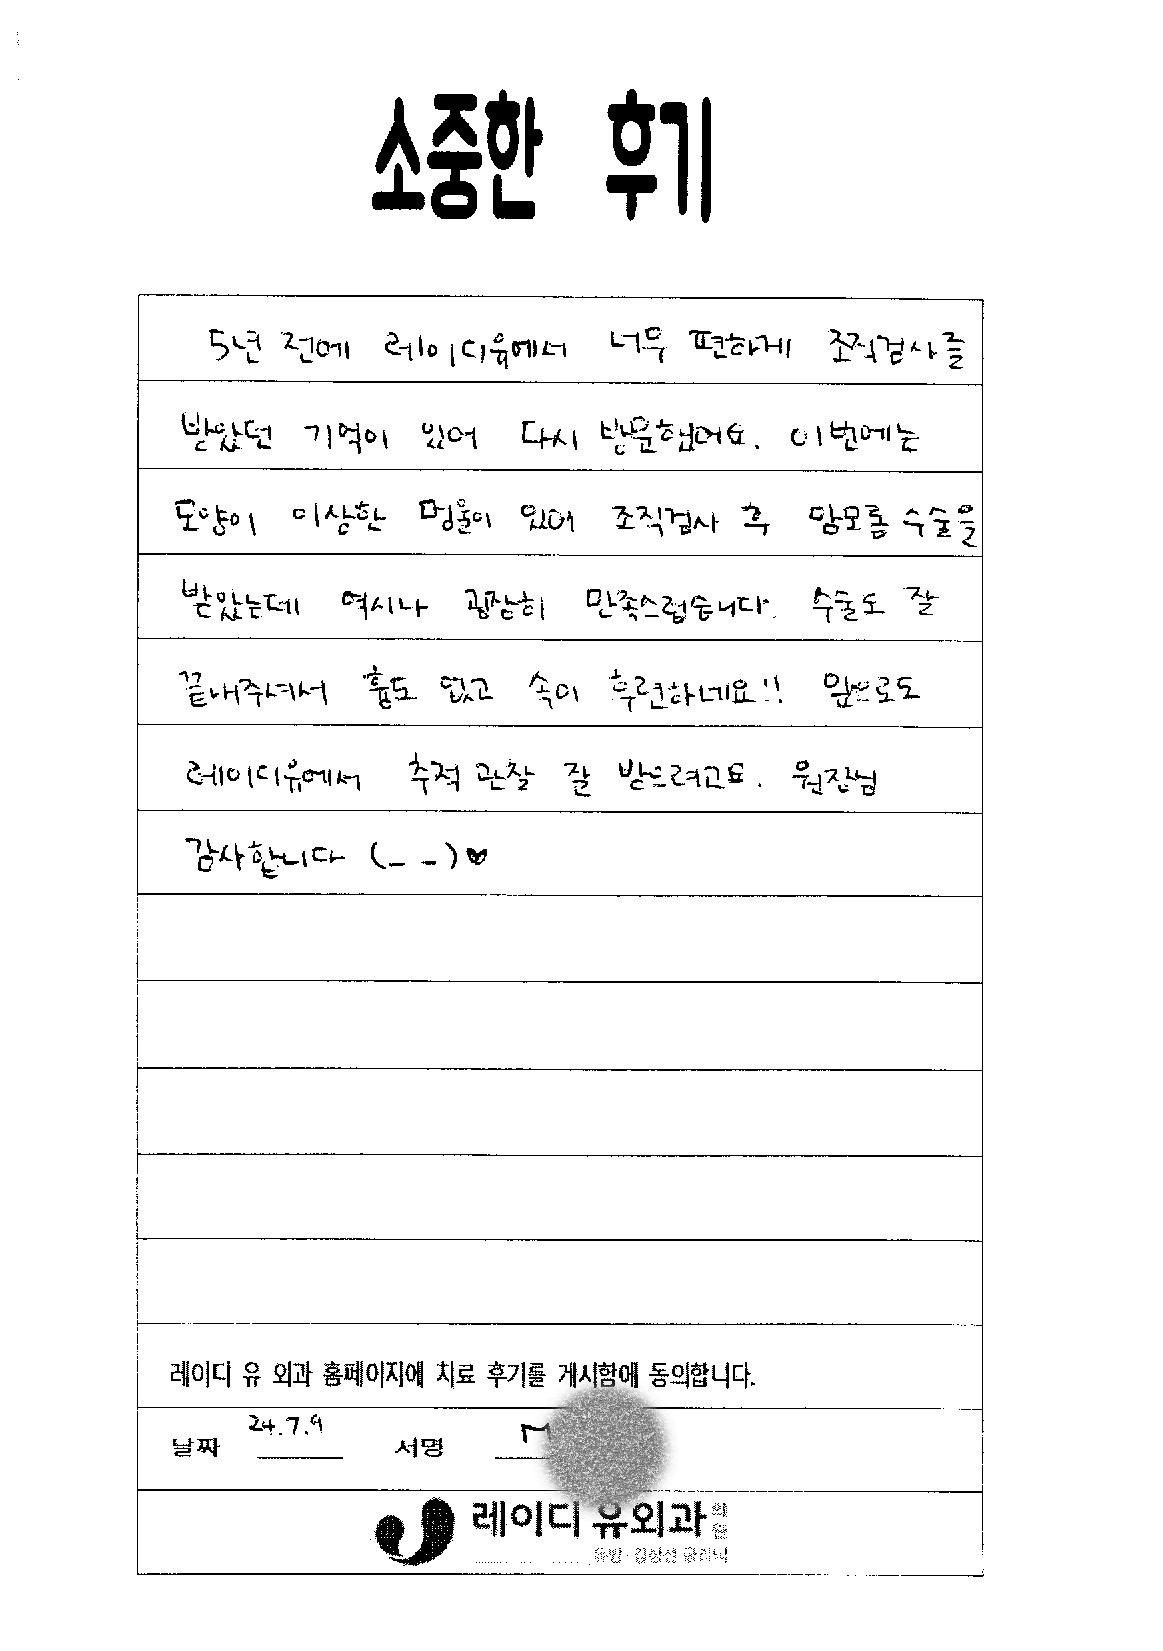 소중한 후기
5년 전에 레이디유에서 너무 편하게 조직검사를
받았던 기억이 있어 다시 방문했어요. 이번에는
모양이 이상한 멍울이 있어 조직검사 후 맘모톰 수술을
받았는데 역시나 굉장히 만족스럽습니다. 수술도 잘
끝내주셔서 흉도 없고 속이 후련하네요!! 앞으로도
레이디유에서 추적 관찰 잘 받으려고요. 원장님
감사합니다 (_ _)♥
레이디 유 외과 홈페이지에 치료 후기를 게시함에 동의합니다.
날짜 24.7.9 서명
레이디 유외과 의원
유방·갑상선 클리닉